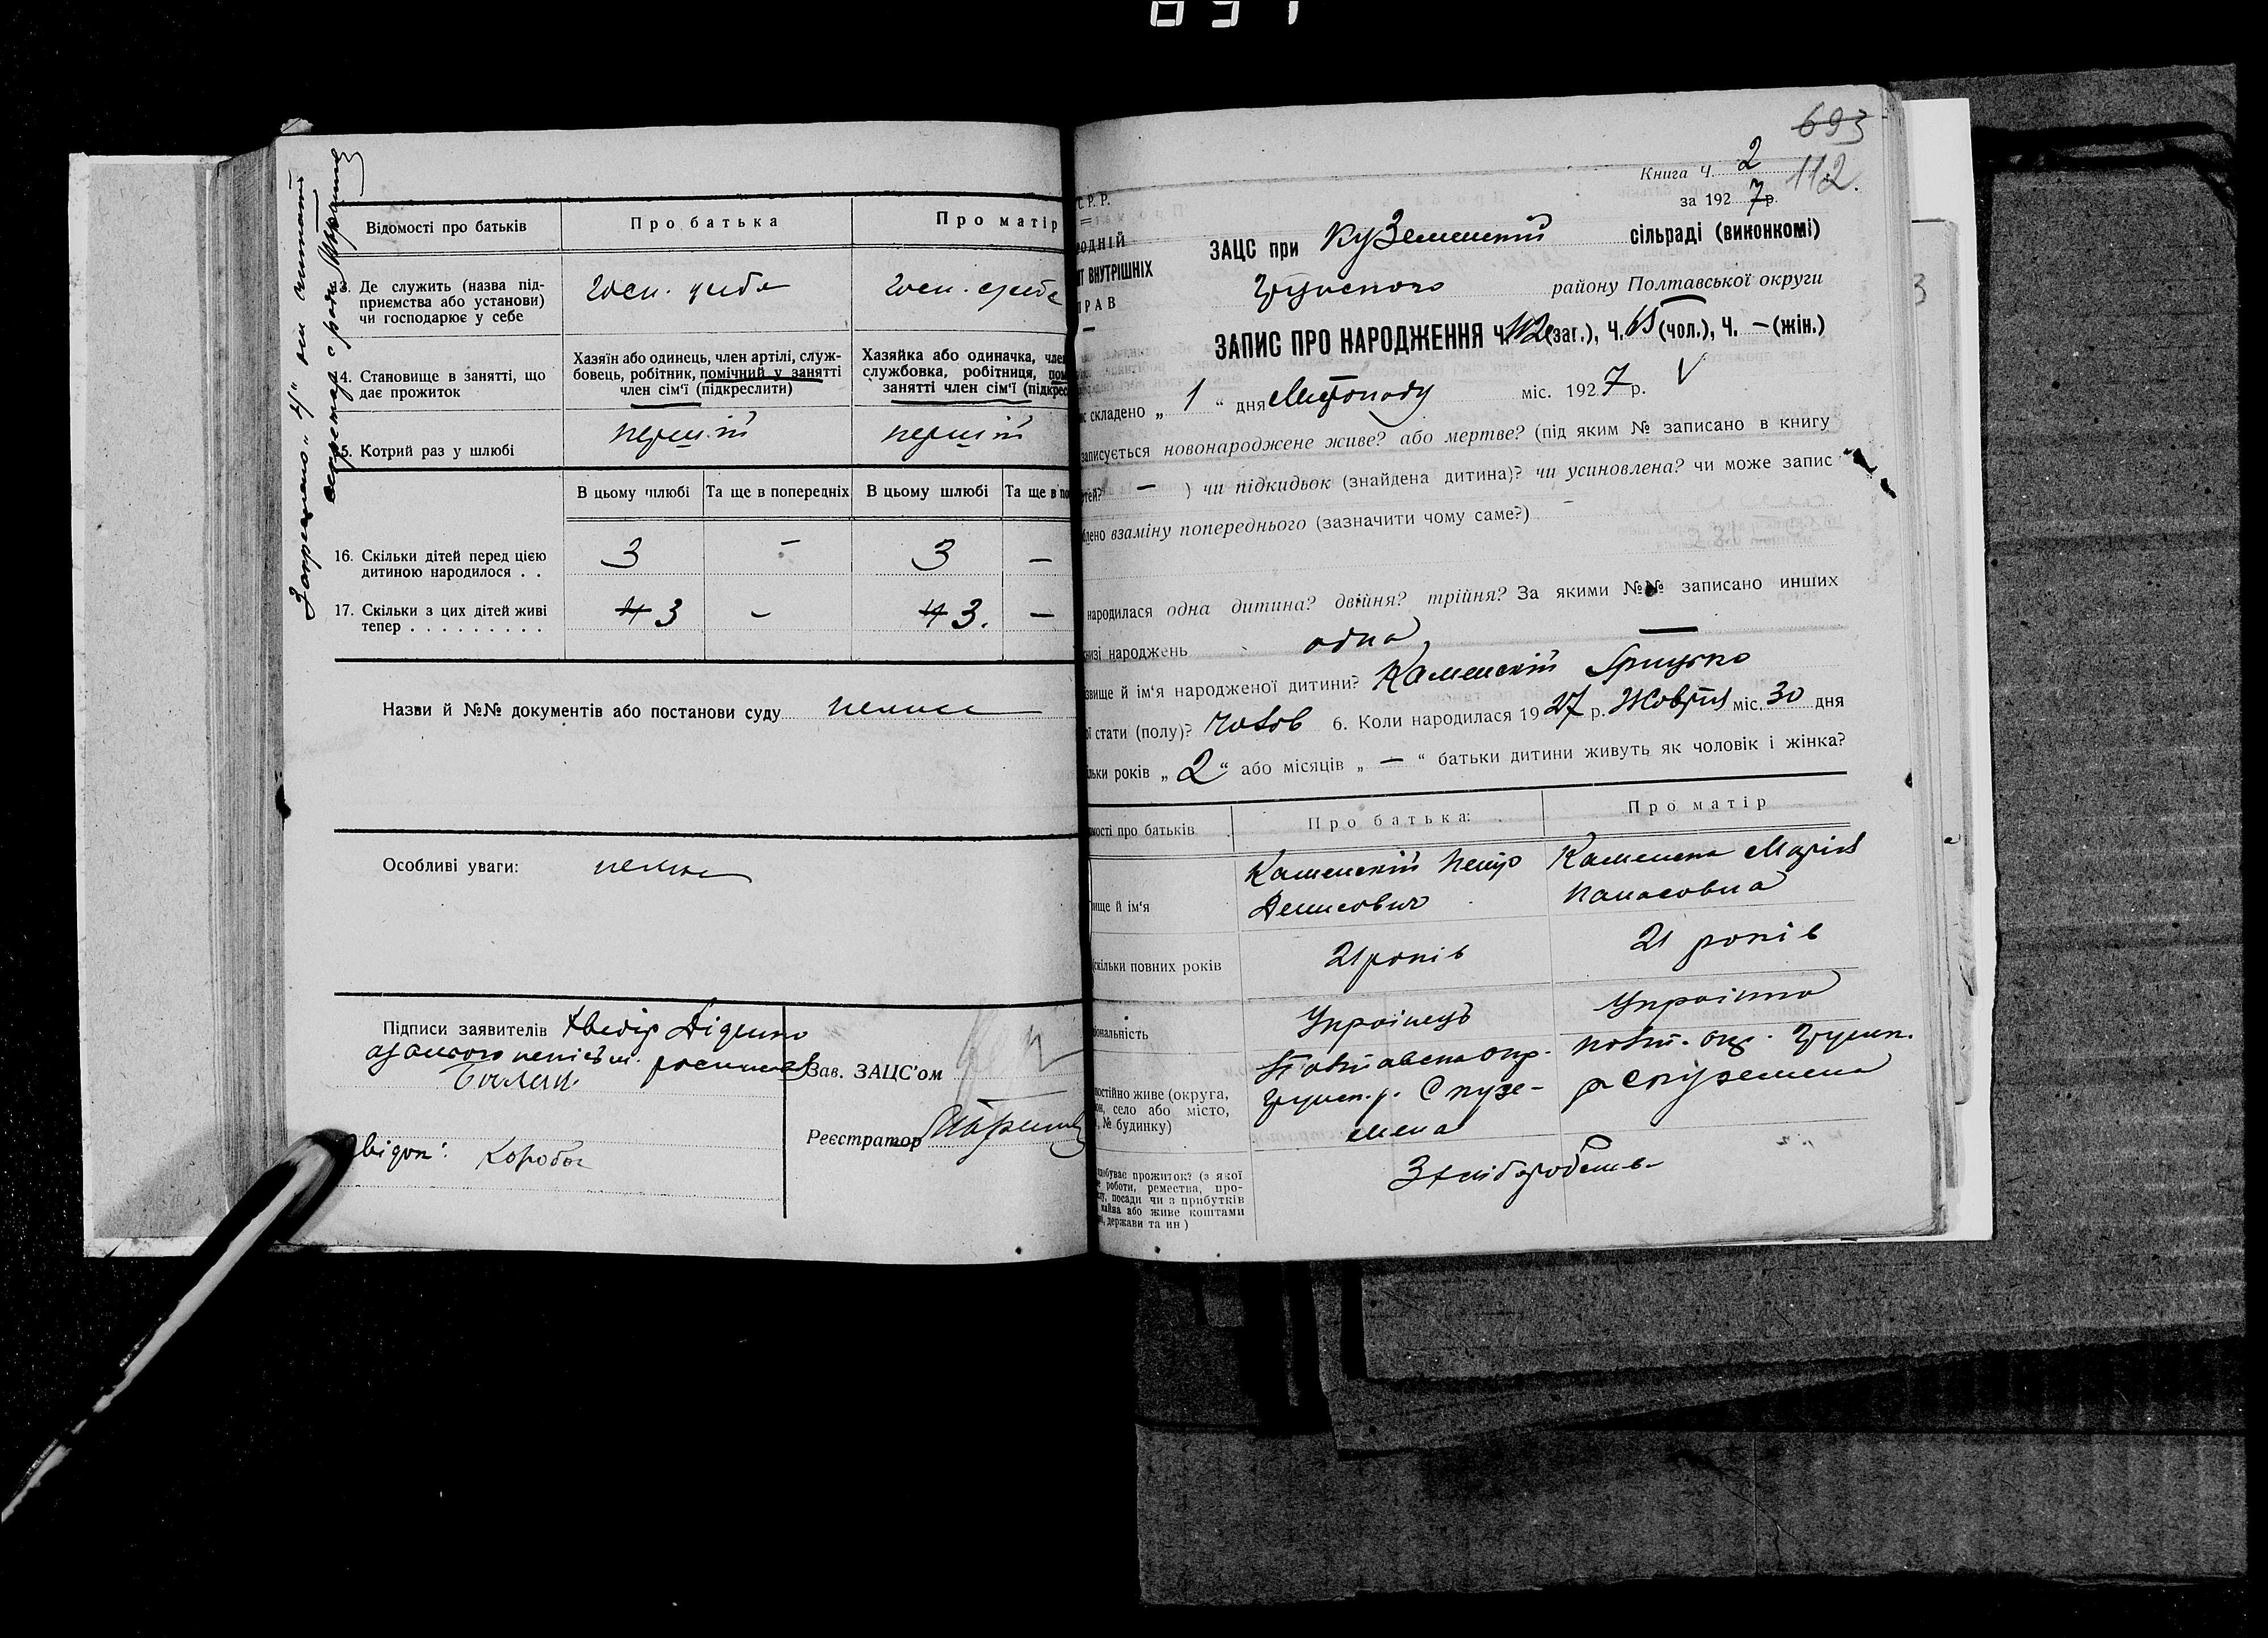 Відомості про батьків
Про батька
Про матір
13. Де служить (назва під-
приємства або установи)
чи господарює у себе
14. Становище в занятті, що
дає прожиток
Хазяїн або одинець, член артілі, служ-
бовець, робітник, помічний у занятті
член сім'ї (підкреслити)
Хазяйка або одиначка, член
службовка, робітниця, пом
занятті член сім'ї (підкрес
15. Котрий раз у шлюбі
перший
перший
В цьому шлюбі
Та ще в попередніх
В цьому шлюбі
Та ще в по
16. Скільки дітей перед цією
дитиною народилося . .
3
–
3
–
17. Скільки з цих дітей живі
тепер . . . . . . . . .
4 3
–
4 3.
–
Назви й №№ документів або постанови суду
немає
Особливі уваги: немає
Підписи заявителів
Зав. ЗАЦС'ом
Реєстратор
Коробка
693
Книга Ч. 2
112.
за 1927 р.
С. Р. Р.
ОДНІЙ
Т ВНУТРІШНІХ
РАВ
ЗАЦС при Куземенській сільраді (виконкомі)
Грунського району Полтавської округи
ЗАПИС ПРО НАРОДЖЕННЯ Ч. 112 (заг.), Ч. 65 (чол.), Ч. – (жін.)
складено „ 1 " дня Листопаду міс. 1927 р.
записується новонароджене живе? або мертве? (під яким № записано в книгу
– ) чи підкидьок (знайдена дитина)? чи усиновлена? чи може запис
блено взаміну попереднього (зазначити чому саме?) –
народилася одна дитина? двійня? трійня? За якими №№ записано инших
книзі народжень одна –
звище й ім'я народженої дитини? Каменский Грицько
ої стати (полу)? чолов 6. Коли народилася 1927 р. Жовтня міс. 30 дня
ільки років „ 2 " або місяців „ – " батьки дитини живуть як чоловік і жінка?
мості про батьків
Про батька:
Про матір
вище й ім'я
Каменский
Денисович
Каменска Марія
Панасовна
скільки повних років
21 років
21 років
іональність
Українець
Українка
постійно живе (округа,
он, село або місто,
№ будинку)
Полтавска окр.
Грунск. р. С Кузе-
менa
Полт. окр. Грунск.
р С Куземена
здобуває прожиток? (з якої
роботи, ремества, про-
су, посади чи з прибутків
майна або живе коштами
, держави та ин )
З хліборобства